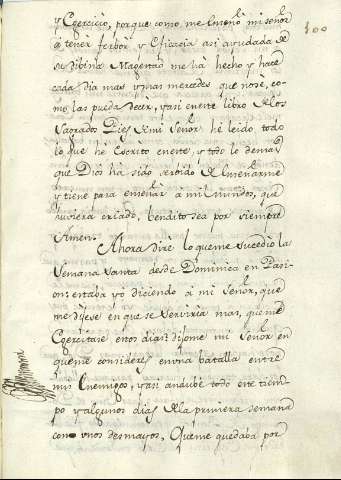 100
y Egercicio, porque como me enseño mi señor
a tener ferbor y Eficazia asi ayudada de
su dibina Magestad me há hecho y hace
cada dia mas y mas mercedes que no sé, co-
mo las pueda decir, y asi en este libro de los
sagrados Pies de mi Señor hé leido todo
lo que hé Escrito en este, y todo lo demas
que Dios ha sido serbido de enseñarme
y tiene para enseñar á mil mundos, que
hubiera criado, bendito sea por siempre
Amen.
Ahora diré lo que me sucedió la
semana santa desde Dominica en Pasi-
on: estaba yó diciendo á mi Señor, que
me dijese en que se serviria mas, que me
Egercitase estos dias: dijome mi Señor en
que me consideres en una batalla entre
mis Enemigos, y asi andube todo este tiem-
po y algunos dias de la primera semana
con unos desmayos, que me quedaba por